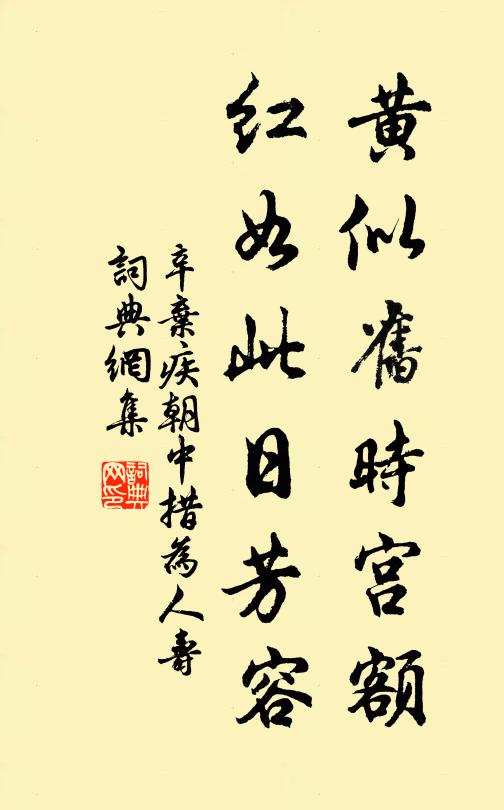 黄似舊時宫額
紅如此日芳容
辛棄疾朝中措為人壽
詞典網集
詞典网印